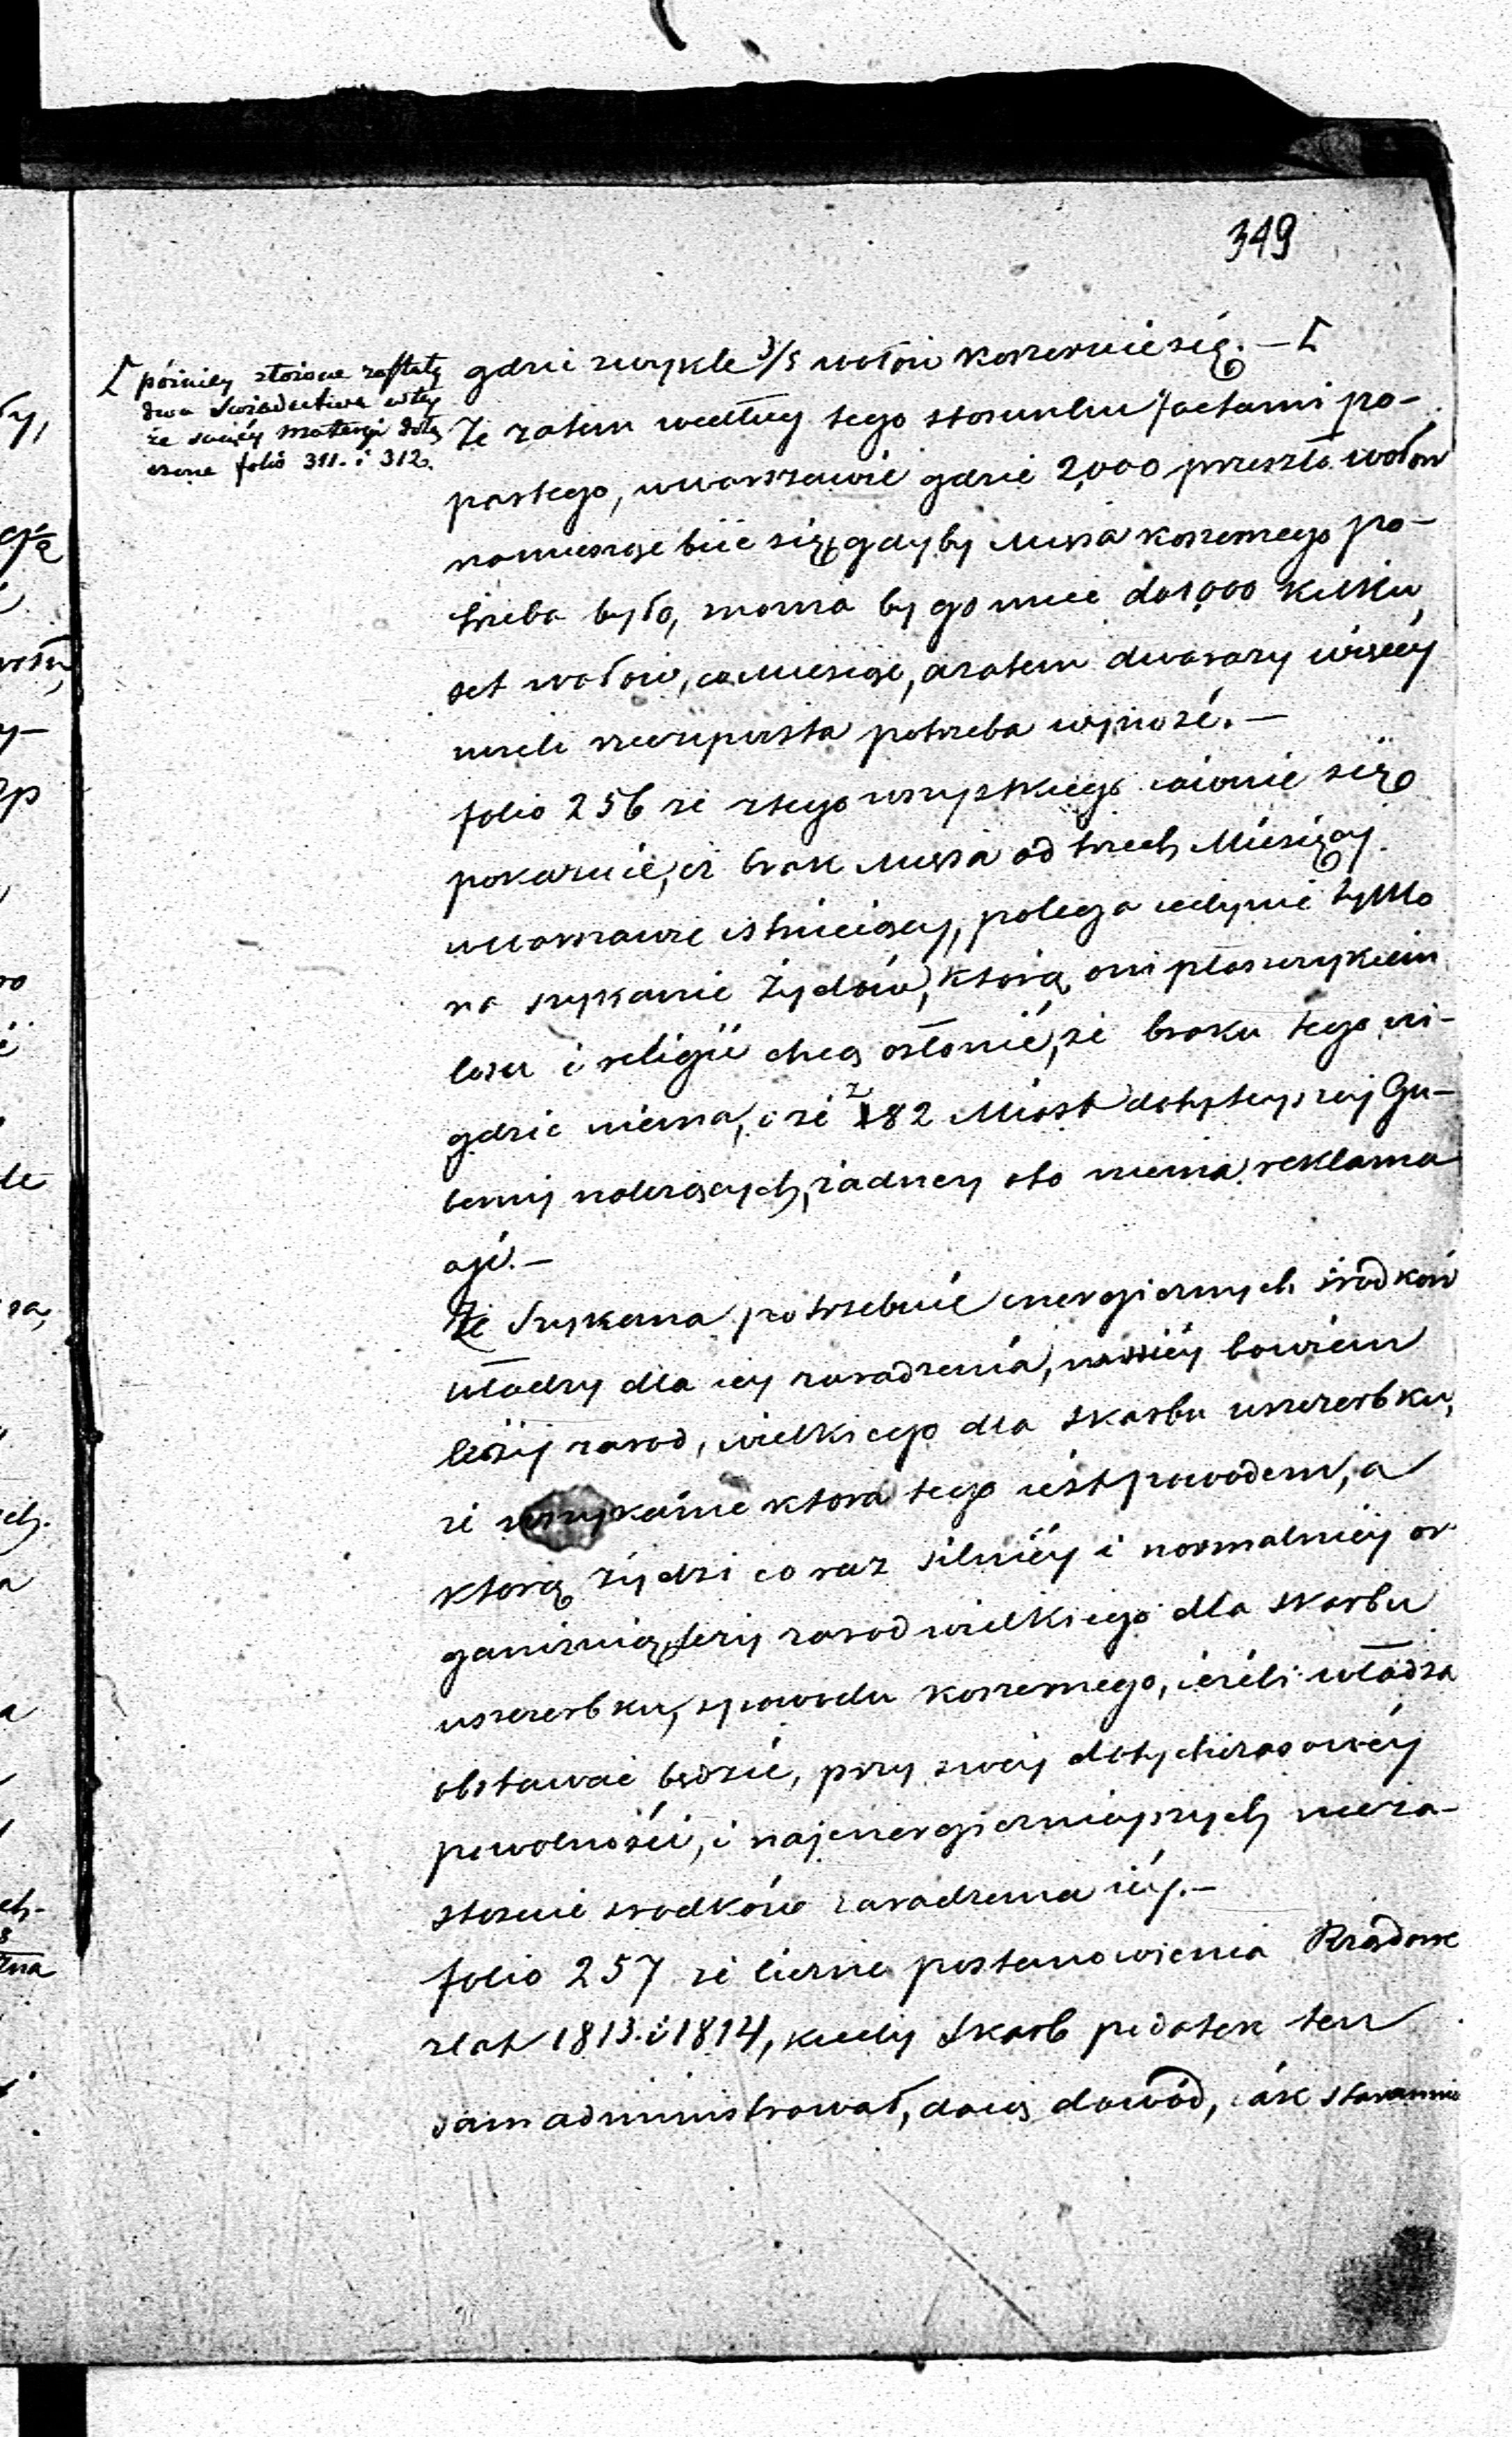 349
[ pózniey złożone zostały
dwa Swiadectwa wtey
że saméy materyi dołą
czone folio 311. i 312.
gdzie zwykle 3/5 wołów koszeruie się. — [
Że zatem według tego stosunku factami po-
partego, wWarszawie gdzie 2,000 przeszło wołow
namiesiąc biie się, gdyby Mięsa koszernego po-
trzeba było, można by go mieć do 1,000 kilku
set wołów, co Miesiąc, a zatem dwa razy więcéy
niżeli rzeczywista potrzeba wynosi. —
folio 256 że ztego wszystkiego iawnie się
pokazuie, iż brak Mięsa od trzech Miesięcy
wWarszawie istnieiący, polega iedynie tylko
na szykanie Żydów, którą oni płaszczykiem
losu i religii chcą osłonić, że braku tego ni-
gdzie niema, i że z 82 Miast do tuteyszey Gu-
berniy należących, żadney oto niema reklama
cyi. —
Że Szykana potrzebuie energicznych środków
władzy dla iey zaradzenia, w niéy bowiem
leży zaród, wielkiego dla Skarbu uszczerbku,
że szykanie która tego iest powodem, a
którą żydzi co raz silniéy i normalniéy or
ganizuią, leży zaród wielkiego dla Skarbu
uszczerbku, z powodu koszernego, ieżeli władza
obstawać będzie, przy swéy dotychczasowéy
powolności, i najenergiczniejszych nieza-
stosuie srodków zaradzenia iéy. —
folio 257 że liczne postanowienia Rządowe
zlat 1813. i 1814, kiedy Skarb podatek ten
sam administrował, daią dowód, iak starannie